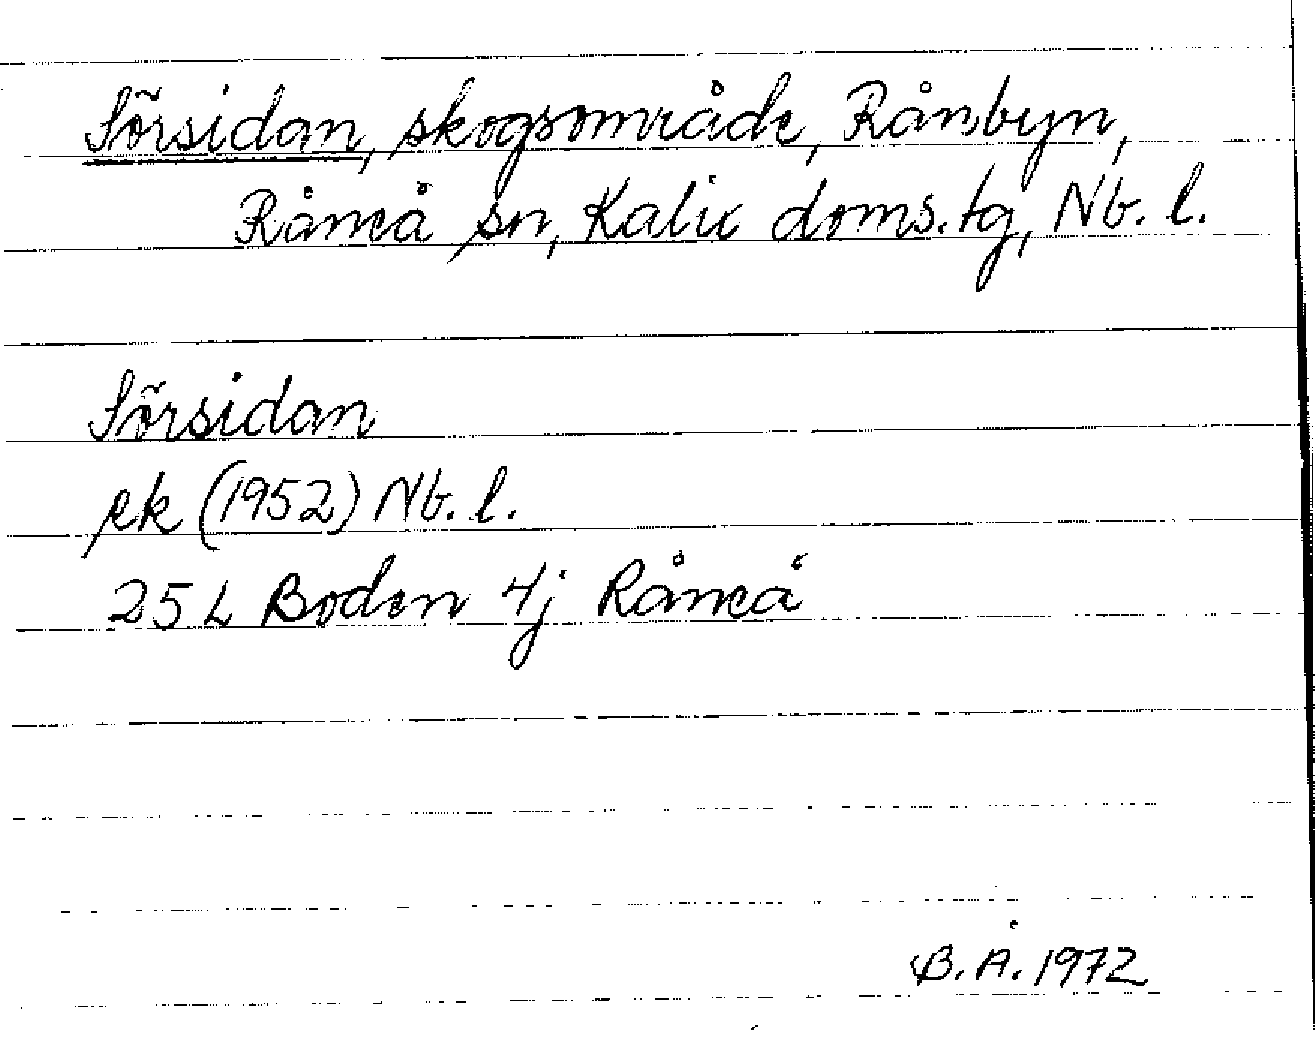 Sörsidan, skogsområde, Rånbyn,
Råneå sn, Kalix doms.tg, Nb. l.
Sörsidan
ek (1952) Nb. l.
25 L Boden 4j Råneå
B. Å. 1972